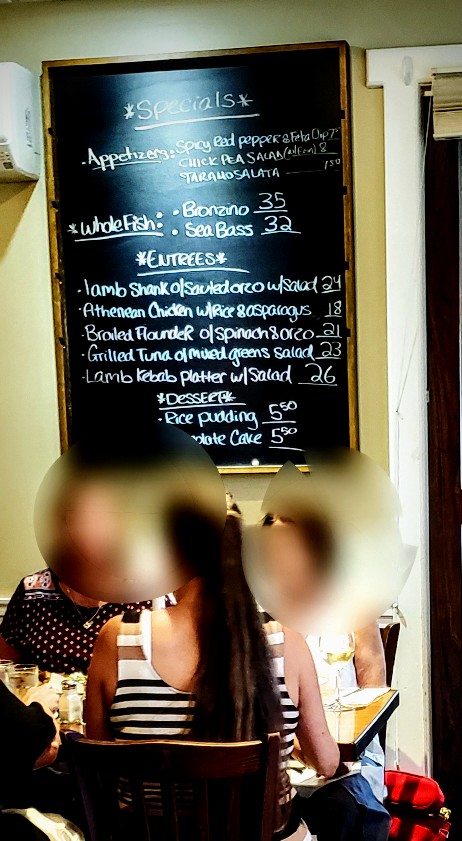 *Specials*
• Appetizers: Spicy Red pepper & Feta Dip 7
CHICK PEA SALAD 8
TARAMOSALATA 7.50
*Whole Fish: • Bronzino 35
• Sea Bass 32
*ENTREES*
• Lamb Shank o/Sauteed orzo w/Salad 24
• Athenean Chicken w/Rice & asparagus 18
Broiled Flounder o/Spinach & orzo 21
• Grilled Tuna o/mixed greens salad 23
• Lamb Kebab platter w/Salad 26
*DESSERT*
• Rice pudding 5.50
Cake 5.50